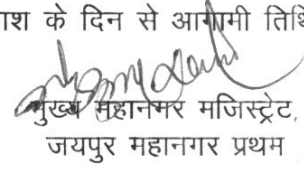 ाश के दिन से आगामी तिथि
मुख्य महानगर मजिस्ट्रेट,
जयपुर महानगर प्रथम